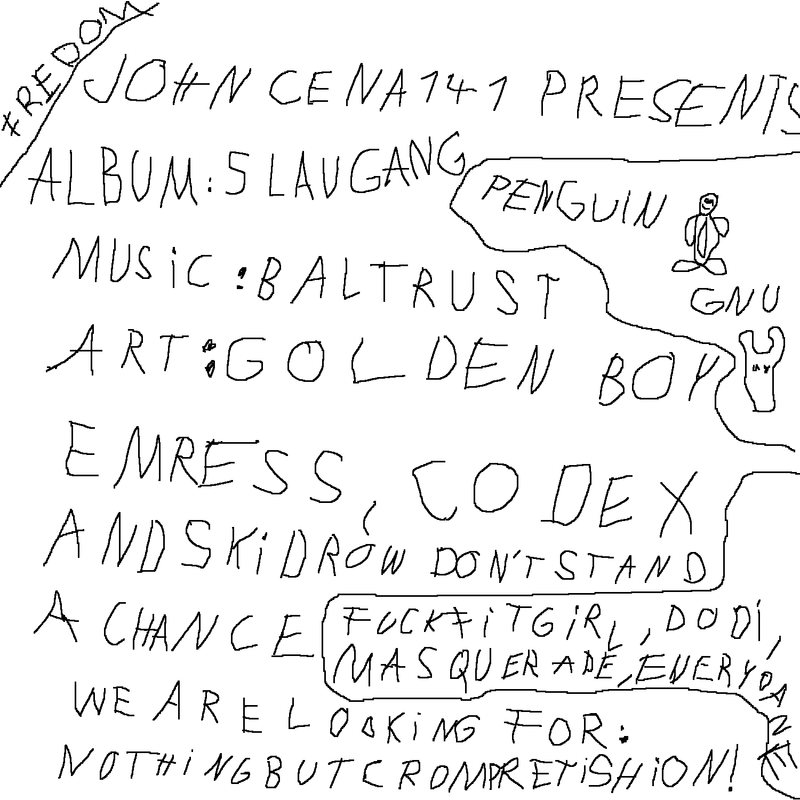 FREDOM
JOHN CENA141 PRESENTS
ALBUM:SLAVGANG
PENGUIN
MUSiC:BALTRUST
GNU
ART:GOLDEN BOY
EMRESS, CODEX
ANDSKiDROW DON'TSTAND
A CHANCE
FUCKFiTGiRL, DODi,
MASQUERADE, EVERYDANE
WE ARE LOOKiNG FOR:
NOTHiNGBUTCROMPRETiSHiON!